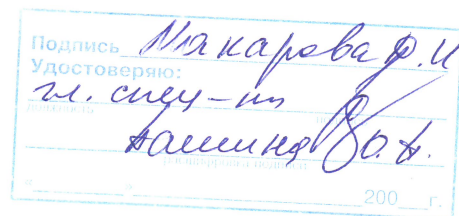 Подпись Макарова Ф.И
Удостоверяю:
гл. спец-т
должность
расшифровка подписи
"___" ________ 200__ г.